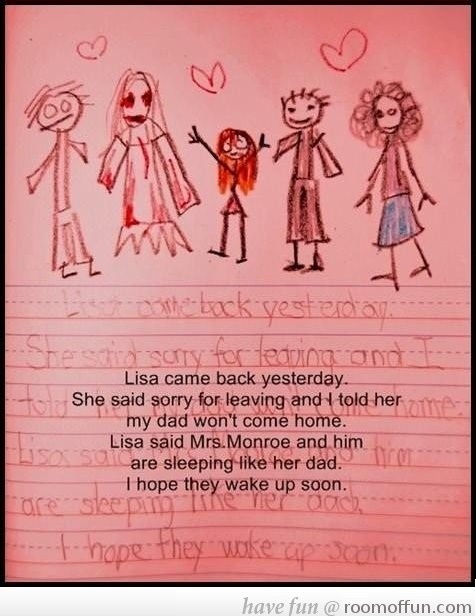 Lisa came back yesterday.
She said sorry for leaving and I
told her my dad won't come home.
Lisa said Mrs. Monroe and him
are sleeping like her dad.
I hope they wake up soon.
Lisa came back yesterday.
She said sorry for leaving and I told her
my dad won't come home.
Lisa said Mrs.Monroe and him
are sleeping like her dad.
I hope they wake up soon.
have fun @ roomoffun.com